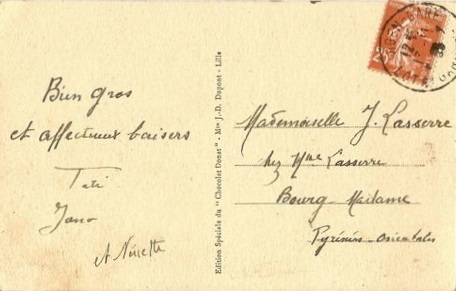 Bien gros
et affectueux baisers
Tati
Jano
et Ninette
Edition Spéciale du "Chocolat Donat" - Mon J.-D. Dupont - Lille
Mademoiselle J. Lasserre
chez Mme Lasserre
Bourg-Madame
Pyrénées-Orientales
AGEN-GARE
25